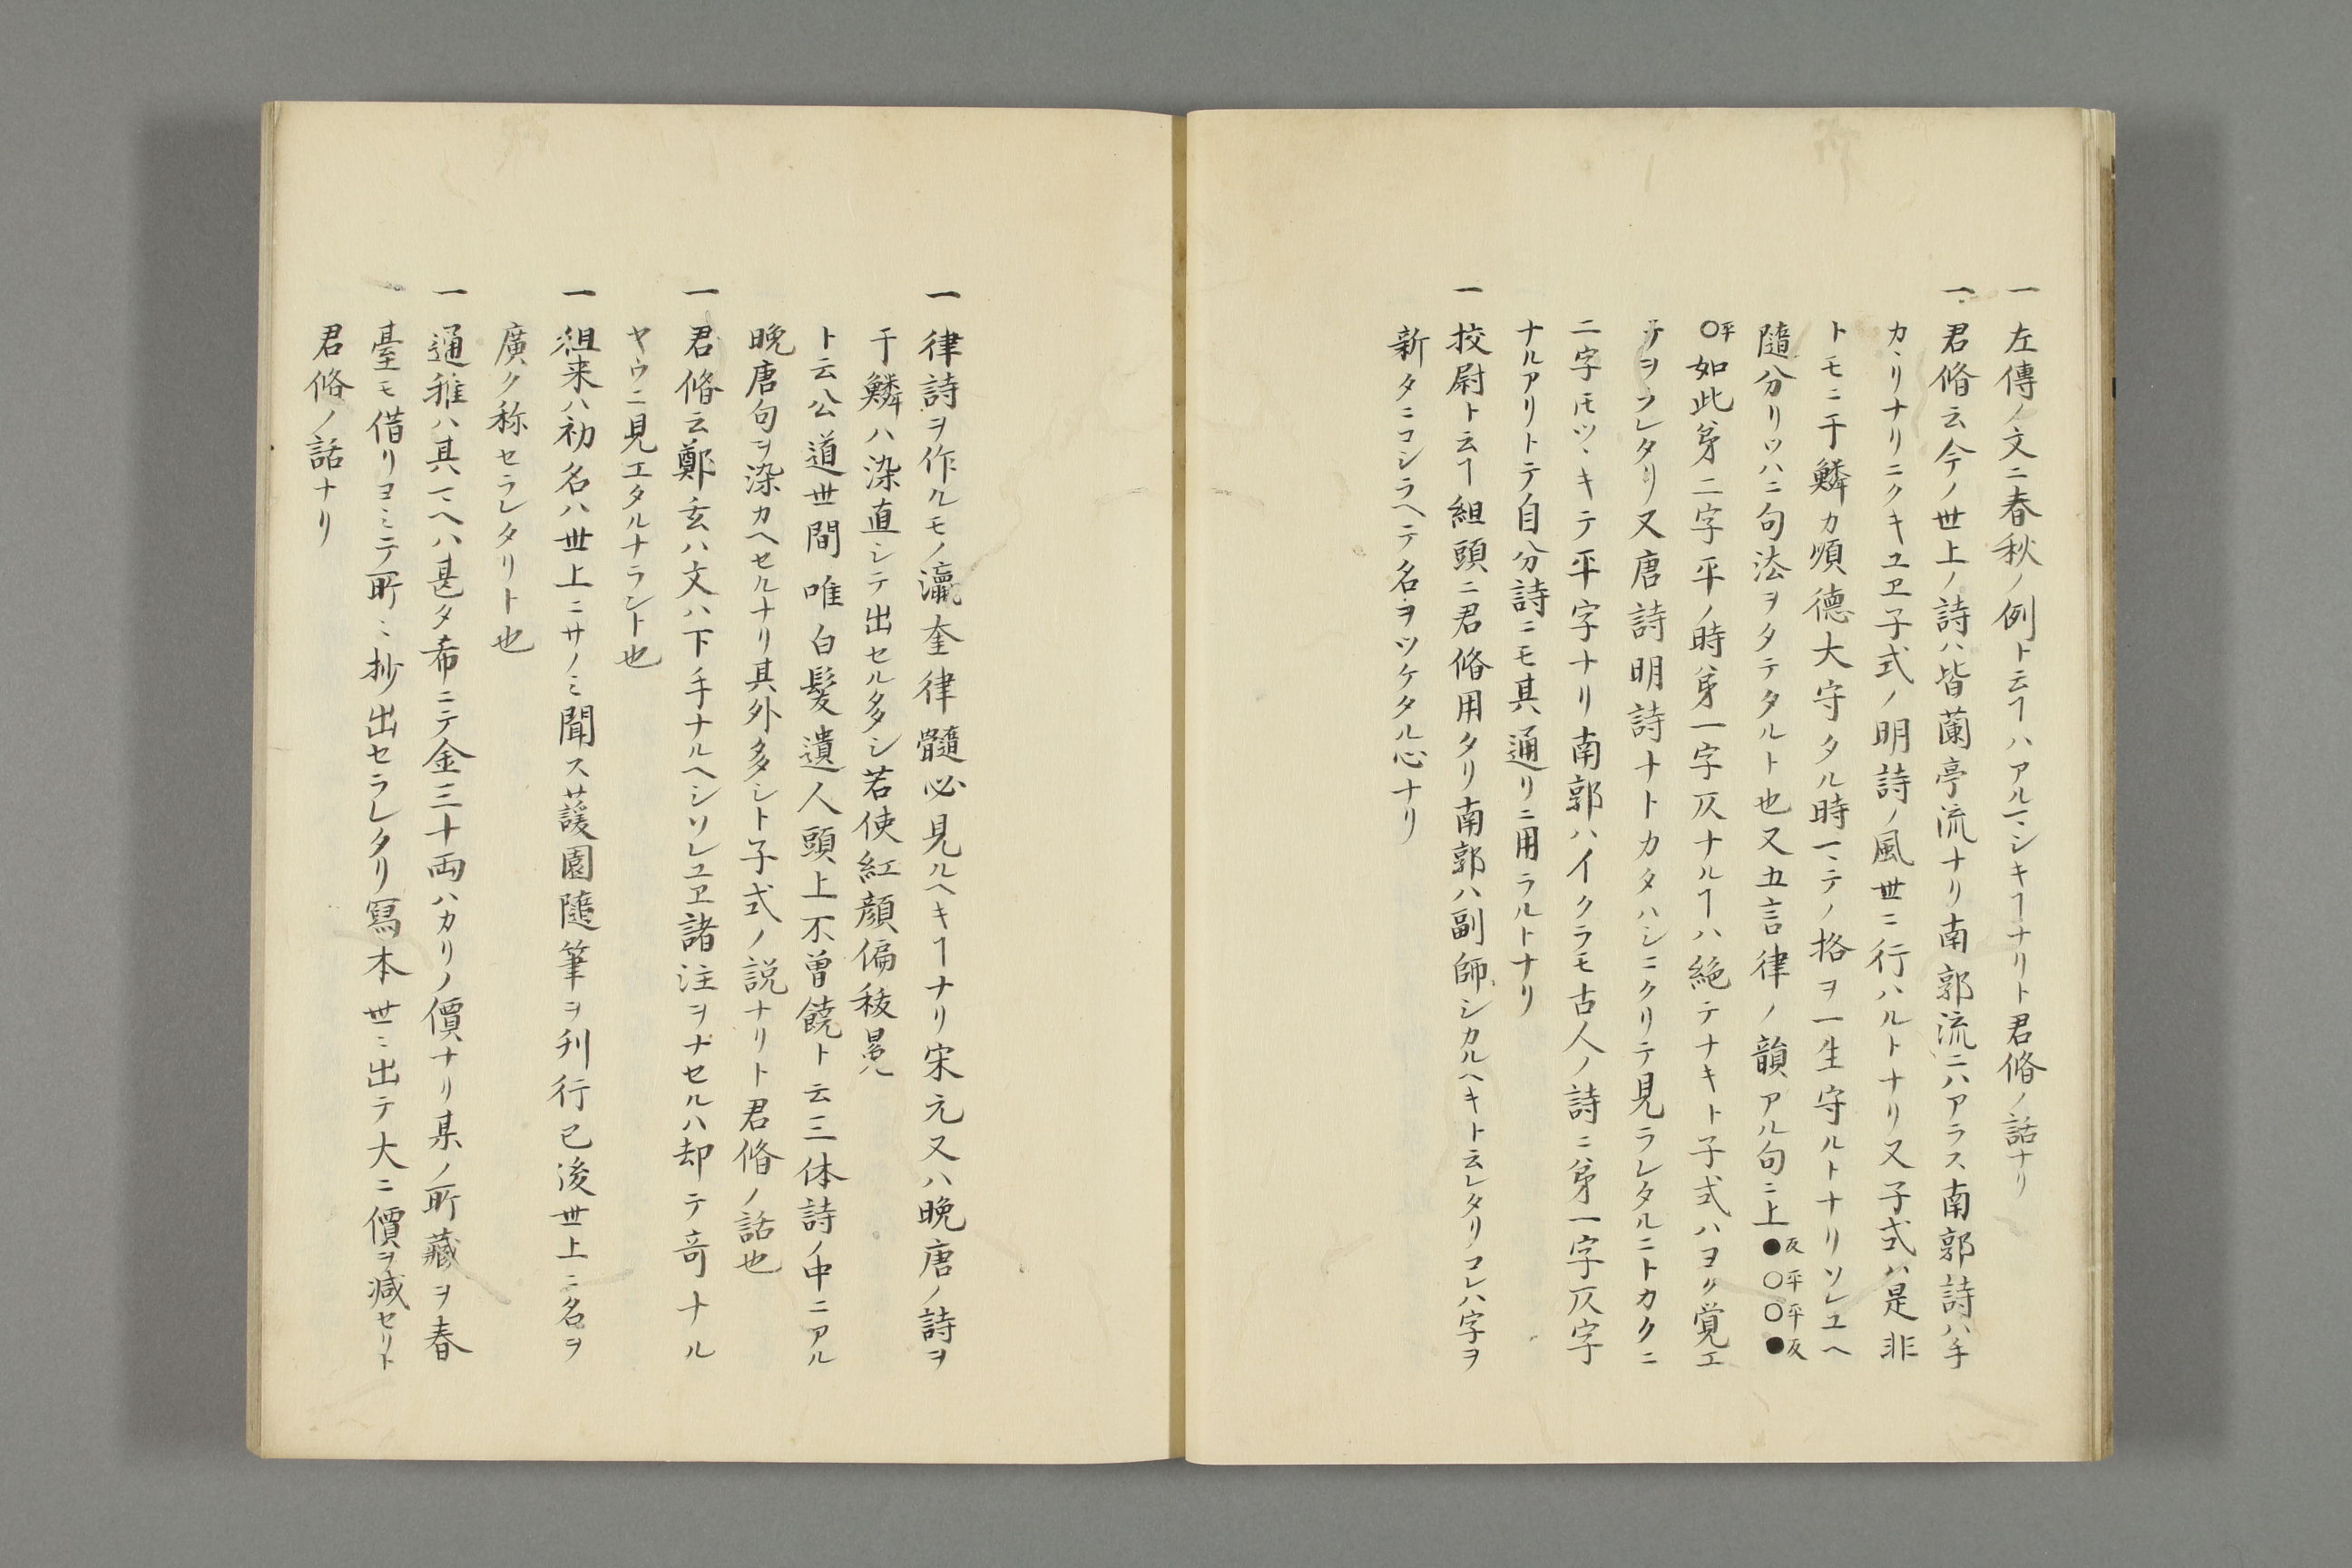 一左傳ノ文ニ春秋ノ例ト云ヿハアルマシキヿナリト君脩ノ話ナリ
一君脩云今ノ世上ノ詩ハ皆蘭亭流ナリ南郭流ニハアラス南郭詩ハ手
カヽリナリニクキユヱ子式ノ明詩ノ風世ニ行ハルトナリ又子式ハ是非
トモニ于鱗カ順德大守タル時マテノ格ヲ一生守ルトナリソレユヘ
隨分リツハニ句法ヲタテタルト也又五言律ノ韻アル句ニ上●仄○平○平●仄
○平如此第二字平ノ時第一字仄ナルヿハ絶テナキト子式ハヨク覚エ
テヲラレタリ又唐詩明詩ナトカタハシニクリテ見ラレタルニトカクニ
二字ﾓツヽキテ平字ナリ南郭ハイクラモ古人ノ詩ニ第一字仄字
ナルアリトテ自分詩ニモ其通リニ用ラルトナリ
一校尉ト云ヿ組頭ニ君脩用タリ南郭ハ副師シカルヘキト云レタリコレハ字ヲ
新タニコシラヘテ名ヲツケタル心ナリ
一律詩ヲ作ルモノ瀛奎律髓必見ルヘキヿナリ宋元又ハ晩唐ノ詩ヲ
于鱗ハ染直シテ出セル多シ若使紅顔偏稜
ト云ハ公道世間唯白髮遺人頭上不曽饒ト云三体詩ノ中ニアル
晩唐句ヲ染カヘセルナリ其外多シト子式ノ説ナリト君脩ノ話也
一君脩云鄭玄ハ文ハ下手ナルヘシソレユヱ諸注ヲナセルハ却テ奇ナル
ヤウニ見エタルナラント也
一徂来ハ初名ハ世上ニサノミ聞ス蘐園隨筆ヲ刋行已後世上ニ名ヲ
廣ク称セラレタリト也
一通雅ハ其マヘハ甚タ希ニテ金三十両ハカリノ價ナリ某ノ所藏ヲ春
臺モ借リヨミテ所ニ抄出セラレタリ冩本世ニ出テ大ニ價ヲ減セリト
君脩ノ話ナリ